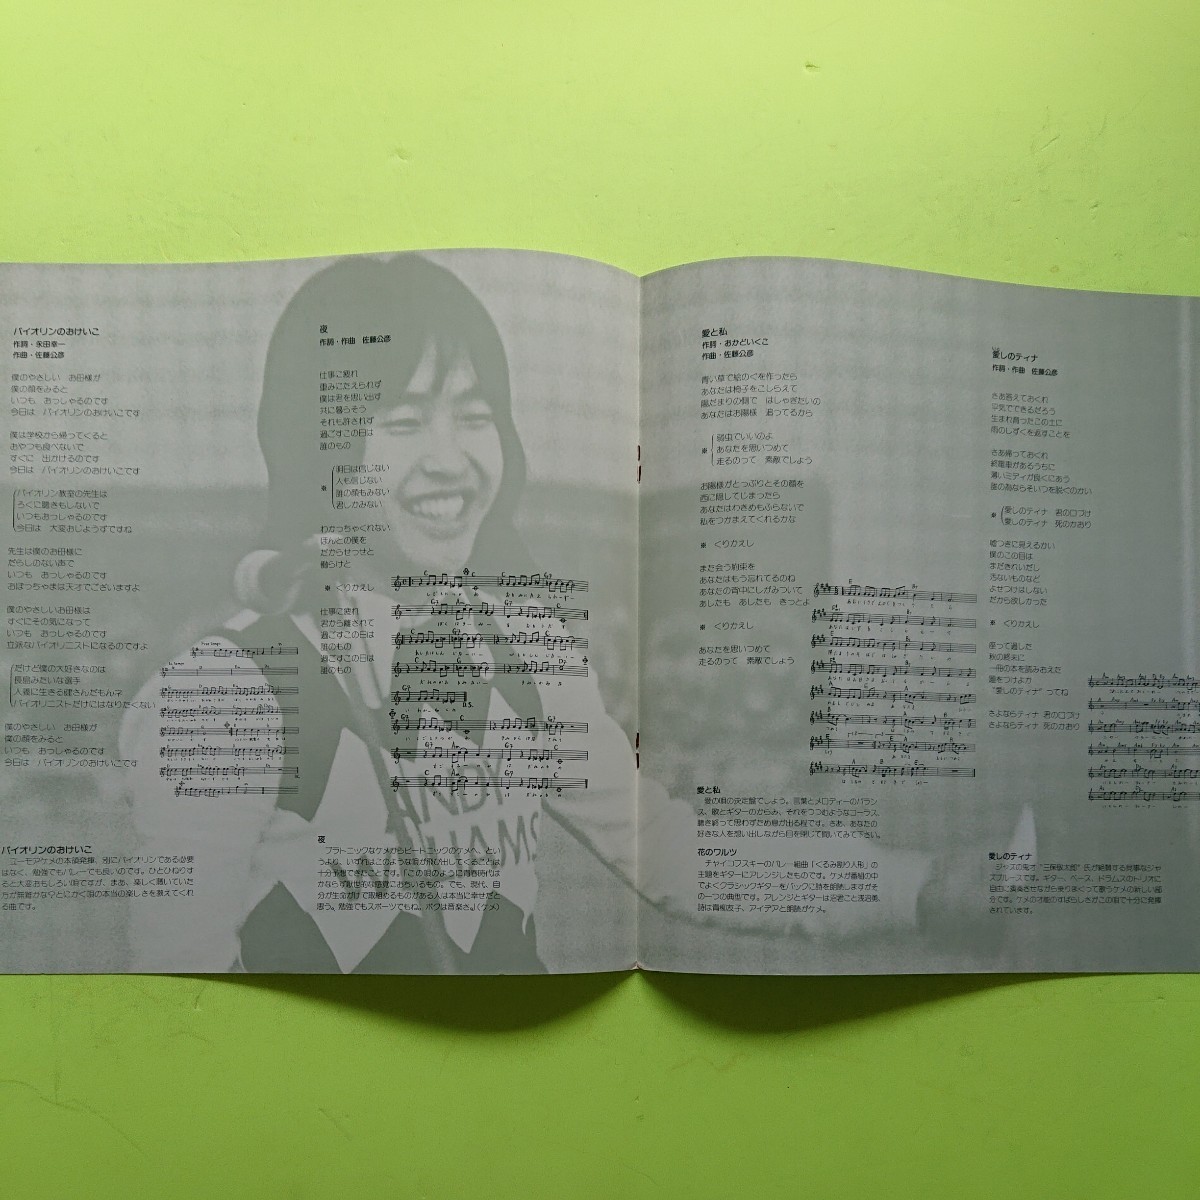 バイオリンのおけいこ
作詞・永田幸一
作曲・佐藤公彦
僕のやさしい お母様が
僕の顔をみると
いつも おっしゃるのです
今日は バイオリンのおけいこです
僕は学校から帰ってくると
おやつも食べないで
すぐに 出かけるのです
今日は バイオリンのおけいこです
バイオリン教室の先生は
ろくに聴きもしないで
いつもおっしゃるのです
今日は 大変おじょうずですね
先生は僕のお母様に
だらしのない声で
いつも おっしゃるのです
おぼっちゃまは天才でございますよ
僕のやさしいお母様は
すぐにその気になって
いつも おっしゃるのです
立派なバイオリニストになるのですよ
だけど僕の大好きなのは
長島みたいな選手
人義に生きる健さんだもんネ
バイオリニストだけにはなりたくない
僕のやさしい お母様が
僕の顔をみると
いつも おっしゃるのです
今日は バイオリンのおけいこです
バイオリンのおけいこ
ユーモアケメの本領発揮、別にバイオリンである必要
はなく、勉強でもバレーでも良いのです。ひとひねりす
ると大変おもしろい唄ですが、まあ、楽しく聴いていた
る曲です。
夜
作詞・作曲 佐藤公彦
仕事に疲れ
重みにたえられず
僕は君を思い出す
共に暮らそう
それも許されず
過ごすこの日は
誰のもの
※
明日は信じない
人も信じない
誰の顔もみない
君しかみない
わかっちゃくれない
ほんとの僕を
だからせっせと
働らけと
※ くりかえし
仕事に疲れ
君から離されて
過ごすこの日は
誰のもの
過ごすこの日は
誰のもの
夜
プラトニックなケメからビートニックのケメへ、とい
うより、いずれはこのような唄が飛び出してくることは
十分予想できたことです。「この唄のように青春時代は
かならず厭世的な意見におちいるもの。でも、現代、自
分が生命がけで取組めるものがある人は本当に幸せだと
思う。勉強でもスポーツでもね、ボクは音楽さ。」(ケメ)
愛と私
作詞・おかどいくこ
作曲・佐藤公彦
青い草で絵のぐを作ったら
あなたは椅子をこしらえて
陽だまりの側で はしゃぎたいの
あなたはお陽様 追ってるから
※
弱虫でいいのよ
あなたを思いつめて
走るのって 素敵でしょう
お陽様がとっぷりとその顔を
西に隠してしまったら
あなたはわきめもふらないで
私をつかまえてくれるかな
※ くりかえし
また会う約束を
あなたはもう忘れてるのね
あなたの背中にしがみついて
あしたも あしたも きっとよ
※ くりかえし
あなたを思いつめて
走るのって 素敵でしょう
愛と私
愛の唄の決定盤でしょう。言葉とメロディーのバラン
ス、歌とギターのからみ、それをつつむようなコーラス、
聴き終って思わずため息が出る程です。さあ、あなたの
好きな人を想い出しながら目を閉じて聞いてみて下さい。
花のワルツ
チャイコフスキーのバレー組曲「くるみ割り人形」の
主題をギターにアレンジしたものです。ケメが番組の中
でよくクラシックギターをバックに詩を朗読しますがそ
の一つの典型です。アレンジとギターは沿岩こと浅沼勇、
詩は青梅友子、アイデアと朗読がケメ。
愛しのティナ
作詞・作曲 佐藤公彦
さあ答えておくれ
平気でできるだろう
生まれ育ったこの土に
雨のしずくを返すことを
さあ帰っておくれ
終電車があるうちに
薄いミディが良くにあう
誰の為ならそいつを脱ぐのかい
※
愛しのティナ 君の口づけ
愛しのティナ 死のかおり
嘘つきに見えるかい
僕のこの目は
まだきれいだし
汚ないものなど
よせつけはしない
だから欲しかった
※ くりかえし
座って過した
秋の終末に
一冊の本を読みおえた
題をつけようか
"愛しのティナ"ってね
さよならティナ 君の口づけ
さよならティナ 死のかおり
愛しのティナ
ジャズの鬼才"三保敬太郎"氏が絶賛する見事なジャ
ズブルースです。ギター、ベース、ドラムスのトリオに
自由に演奏させながら乗りまくって歌うケメの新しい部
分です。ケメの才能のすばらしさがこの唄で十分に発揮
されています。